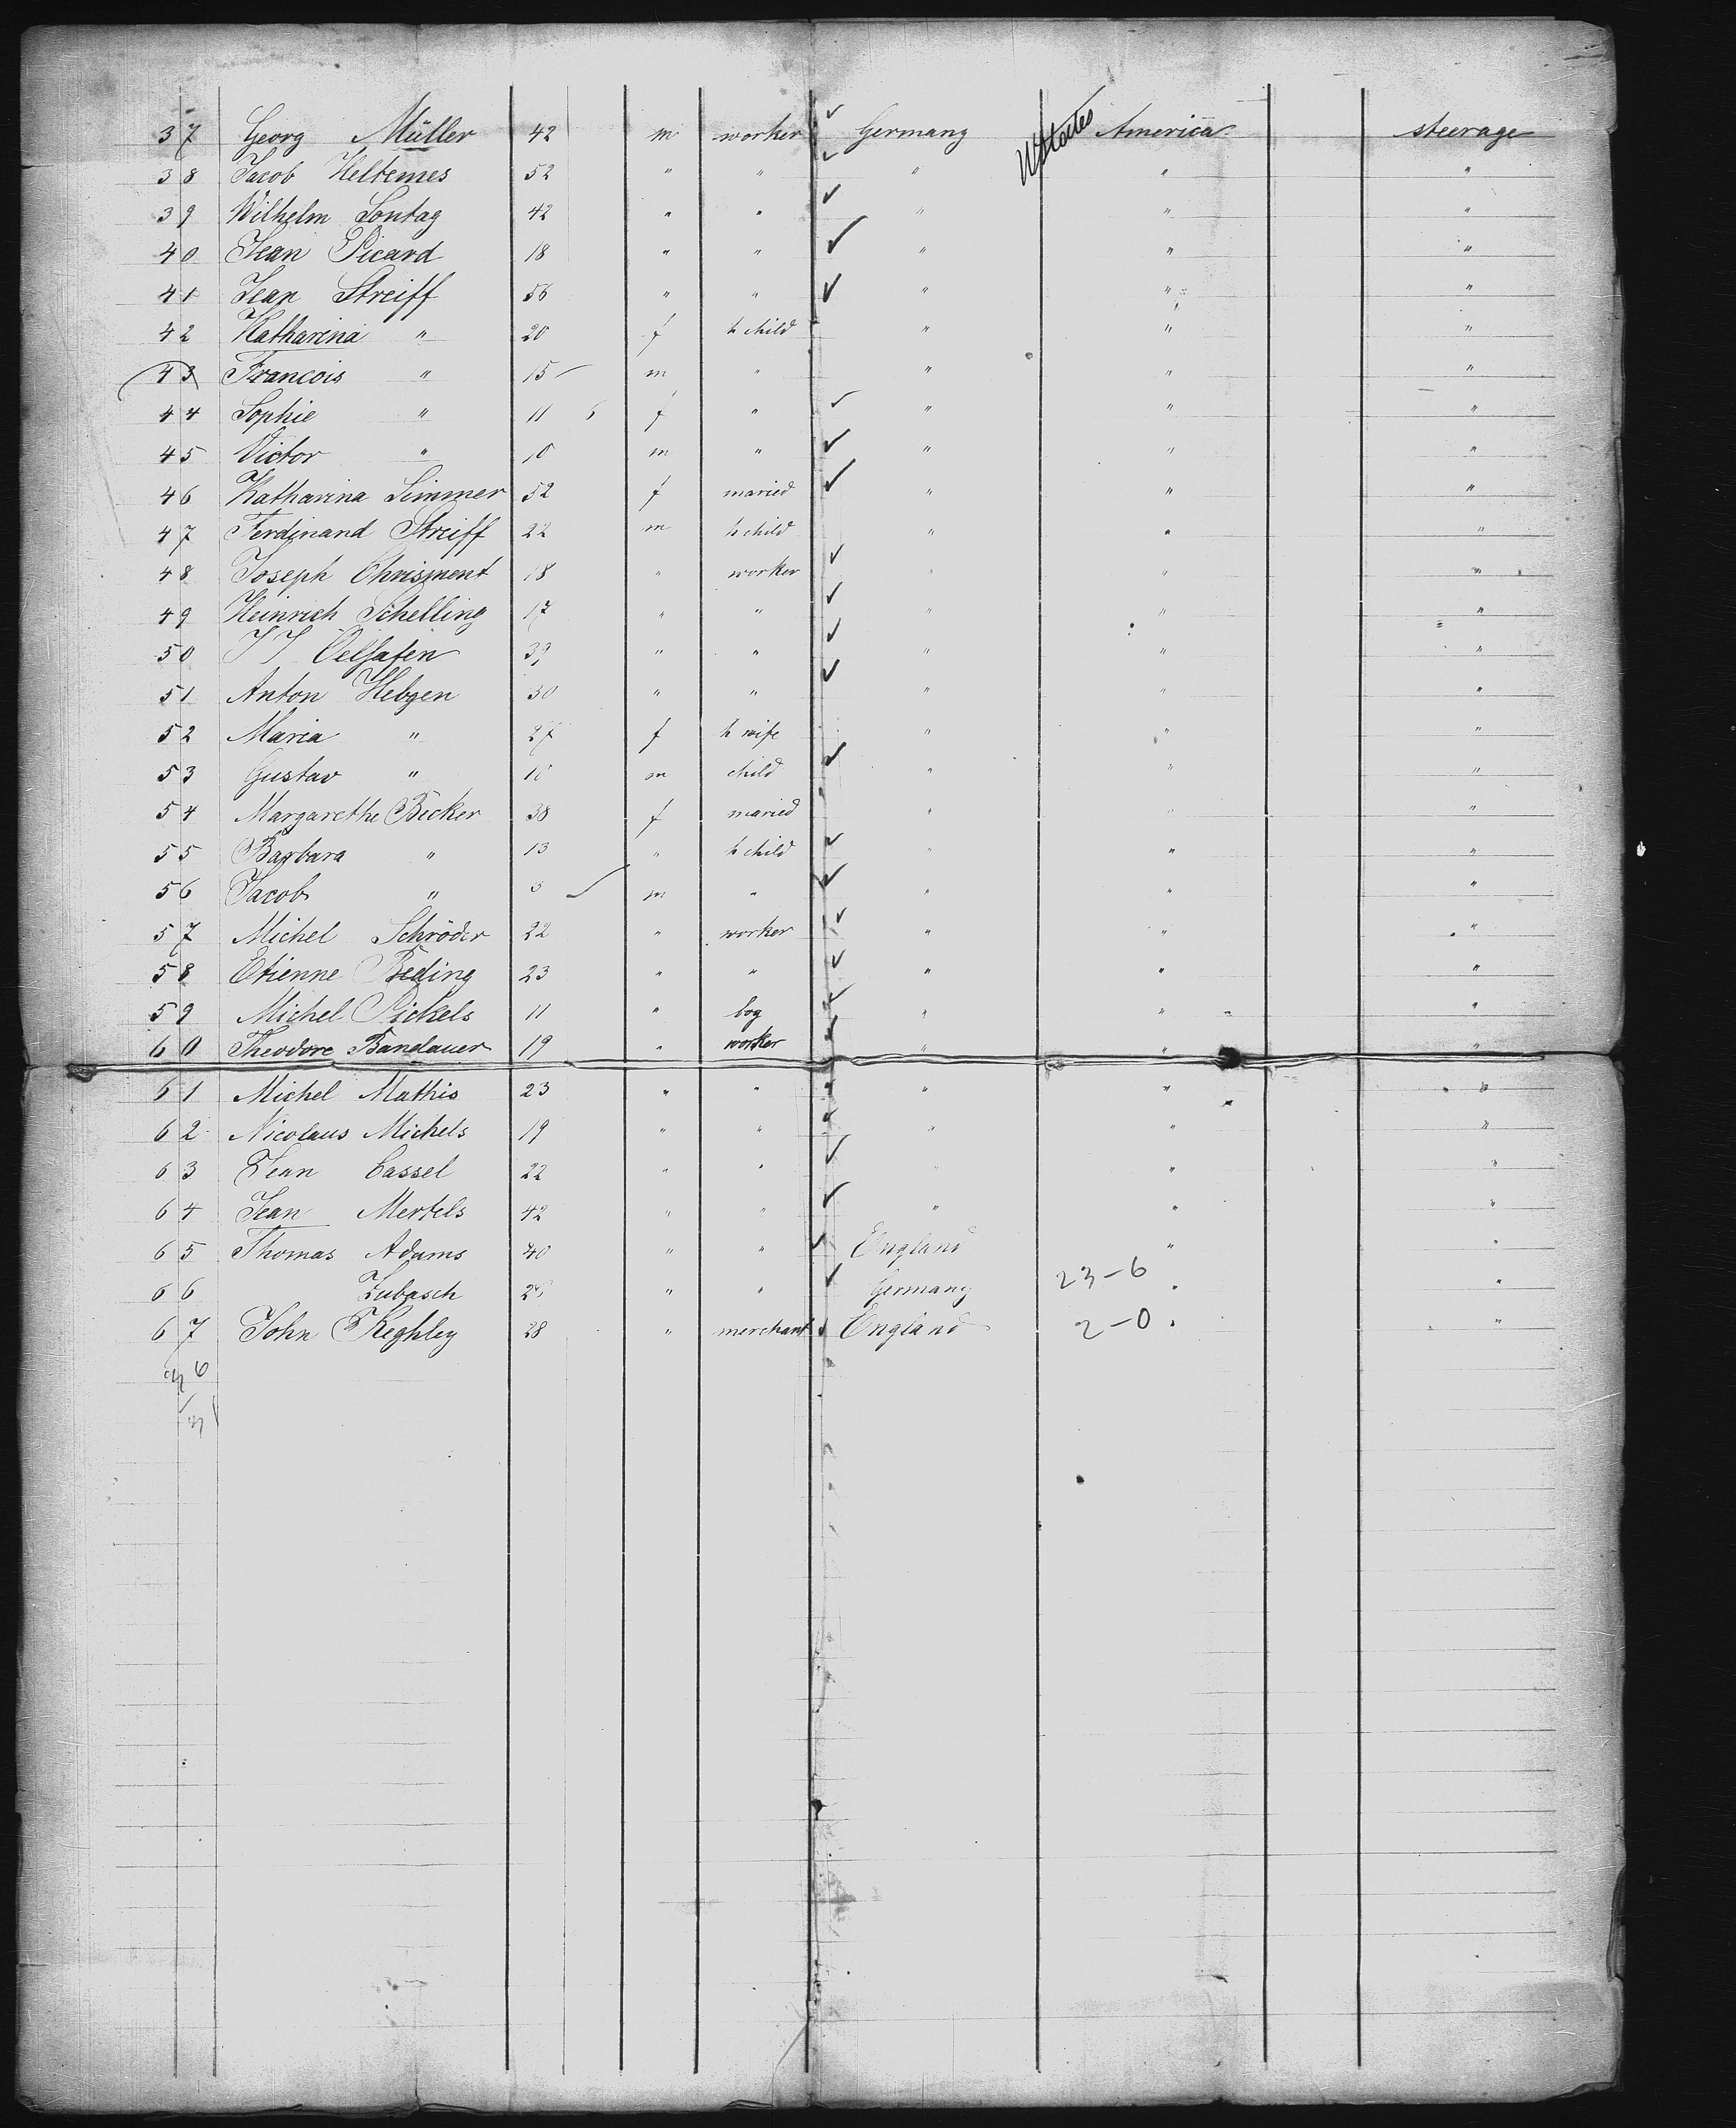 37 Georg Müller 42 m worker Germany U States America steerage
38 Jacob Heltemes 52 " " " " "
39 Wilhelm Sontag 42 " " " " "
40 Jean Picard 18 " " " " "
41 Jean Streiff 56 " " " " "
42 Katharina " 20 f h child " " "
43 Francois " 15 m " " " "
44 Sophie " 11 f " " " "
45 Victor " 10 m " " " "
46 Katharina Simmer 52 f maried " " "
47 Ferdinand Streiff 22 m h child " " "
48 Joseph Chrisment 18 " worker " " "
49 Heinrich Schelling 17 " " " " "
50 J J 39 " " " " "
51 Anton Hebgen 30 " " " " "
52 Maria " 27 f h wife " " "
53 Gustav " 10 m child " " "
54 Margarethe Becker 38 f maried " " "
55 Barbara " 13 " h child " " "
56 Jacob " m " " " "
57 Michel Schröder 22 " worker " " "
58 Etienne Beding 23 " " " " "
59 Michel Pickels 11 " boy " " "
60 Theodore Bandauer 19 " worker " " "
61 Michel Mathis 23 " " " " "
62 Nicolaus Michels 19 " " " " "
63 Jean Cassel 22 " " " " "
64 Jean Mertels 42 " " " " "
65 Thomas Adams 40 " " England " "
66 Zubasch " " Germany 23-6 " "
67 John Keghley 28 " merchant England 2-0 " "